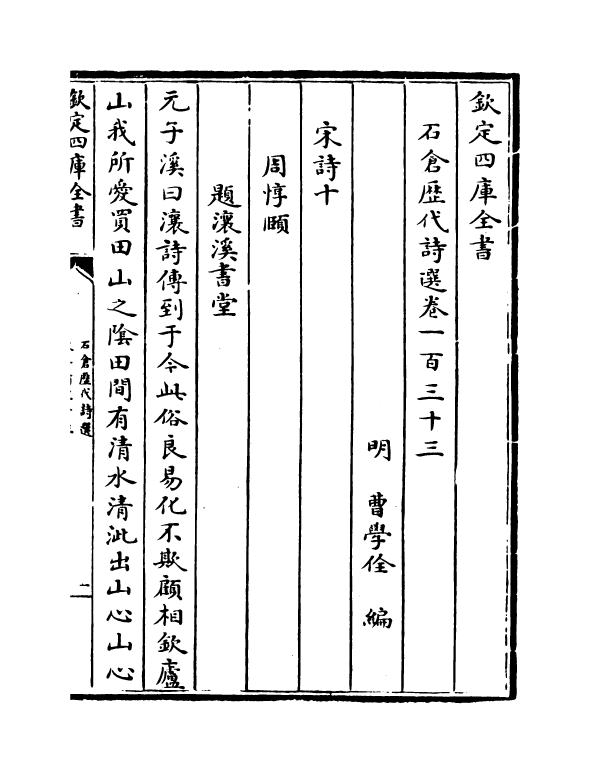 欽定四庫全書
石倉歴代詩選卷一百三十三
明 曹學佺 編
宋詩十
周惇頤
題濂溪書堂
元子溪曰瀼詩傳到于今此俗良易化不欺顧相欽廬
山我所愛買田山之隂田間有清水清泚出山心山心
欽定四庫全書
石倉歴代詩選